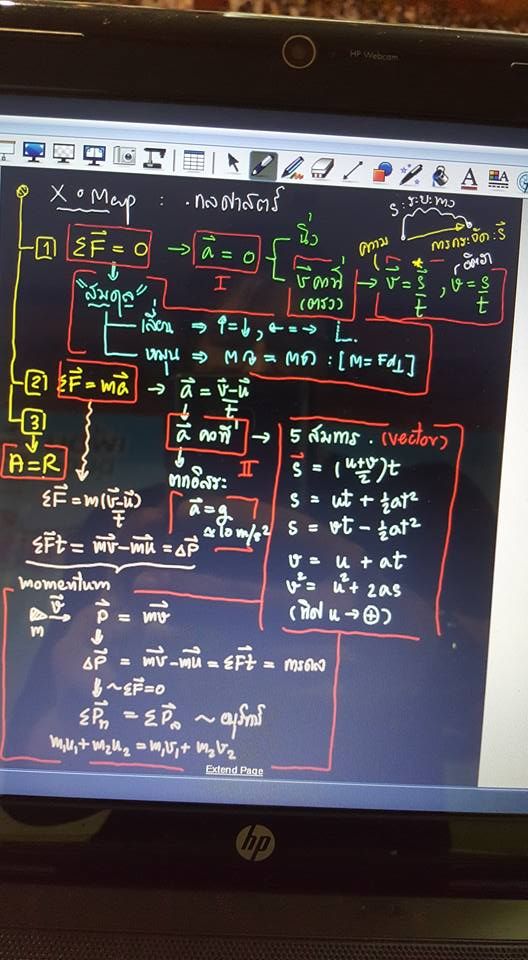 HP Webcam
X•Map : . กลศาสตร์
S : ระยะทาง
การกระจัด : S⃗
1 ΣF⃗ = 0 → a⃗ = 0 นิ่ง
I v⃗ คงที่ (ตรง) → v⃗ = s⃗/t , v = s/t
ความ อัตรา
"สมดุล"
เลื่อน ⇒ ↑=↓, ←=→
หมุน ⇒ Mท = Mต : [M = Fd⊥]
2 ΣF⃗ = ma⃗ → a⃗ = v⃗-u⃗/t
3
A = R
a⃗ คงที่ → 5 สมการ . (vector)
II
s⃗ = (u+v/2)t
s = ut + ½at²
s = vt - ½at²
v = u + at
v² = u² + 2as
(ทิศ u → ⊕)
ตกอิสระ:
a⃗ = g
≈ 10 m/s²
ΣF⃗ = m(v⃗-u⃗)/t
ΣF⃗t = mv⃗ - mu⃗ = ΔP⃗
momentum
m v⃗ P⃗ = mv⃗
ΔP⃗ = mv⃗ - mu⃗ = ΣF⃗t = การดล
↓ ~ ΣF⃗=0
ΣP⃗ก = ΣP⃗ล ~ อนุรักษ์
m₁u₁ + m₂u₂ = m₁v₁ + m₂v₂
Extend Page
hp